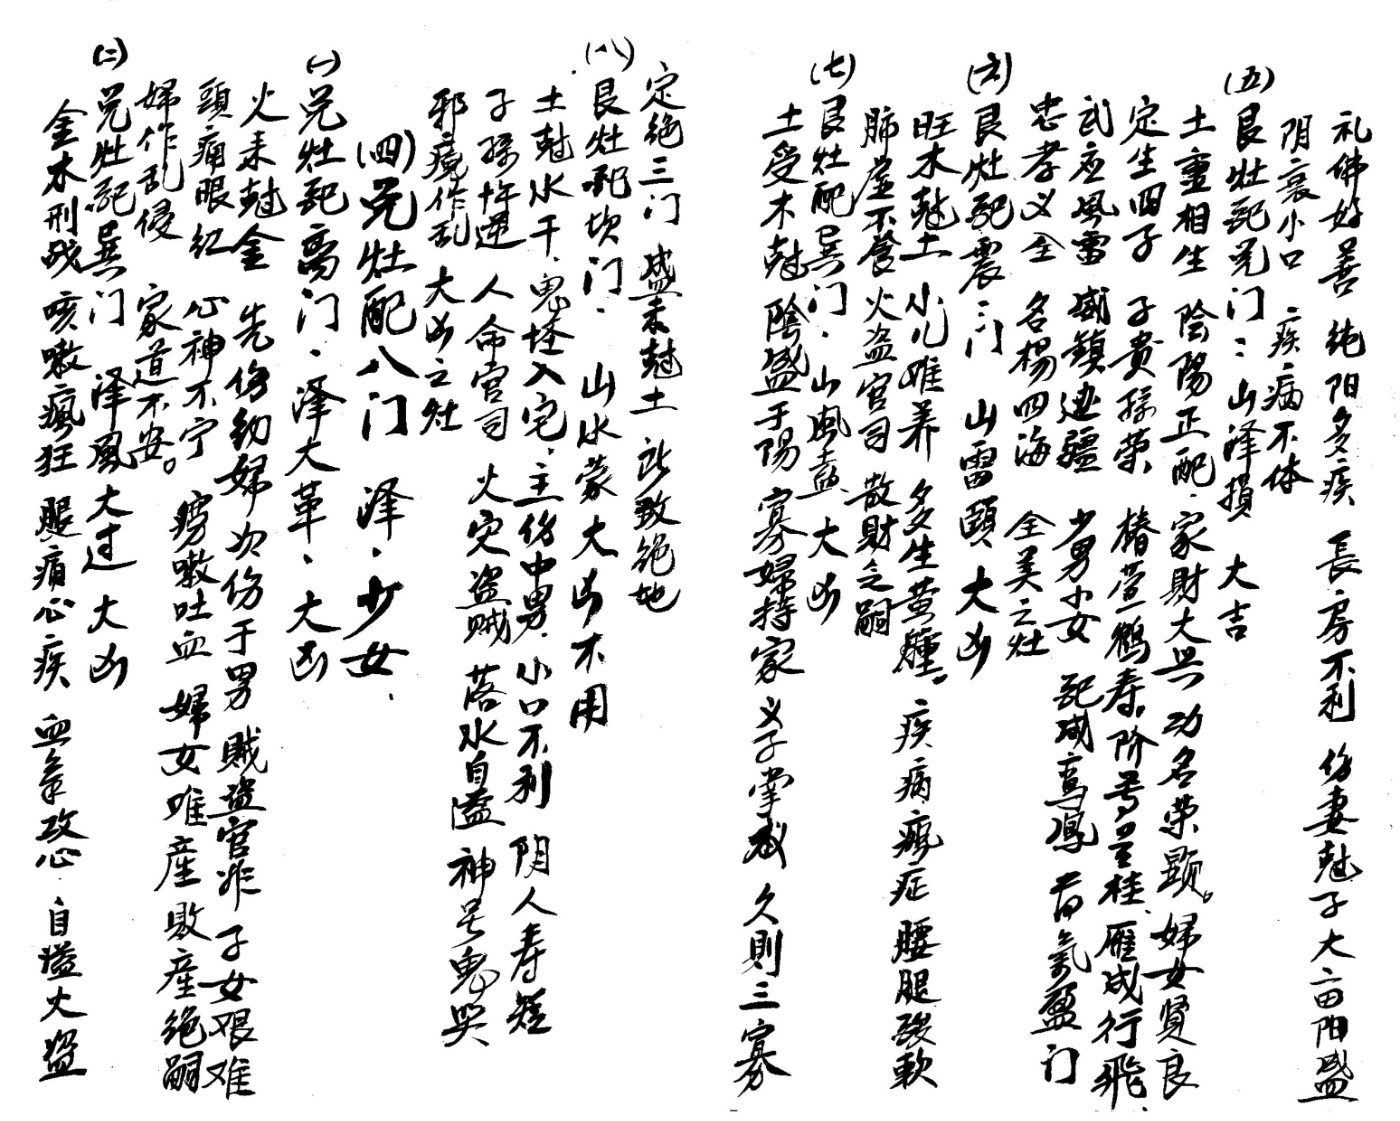 礼佛好善 纯阳多疾 長房不利 伤妻尅子大二田阳盛
阴衰小口 疾病不体
(五)艮灶配兑门：山泽損 大吉
土重相生 陰陽正配．家財大兴 功名荣顕。婦女贤良
定生四子 子贵孫荣 椿萱鶴寿 阶 桂 雁成行飛
武应風雷 威鎮边疆 少男少女 配成鸾鳳 喜氣盈门
忠孝义全 名楊四海 全美之灶
(六)艮灶配震门 山雷頤 大凶
旺木尅土 小儿难养 多生黄腫。疾病瘋症 腰腿酸軟
肺虚不食 火盗官司 散財乏嗣
(七)艮灶配巽门．山風蛊 大凶
土受木尅 陰盛于陽 寡婦持家 义子掌权 久則三寡
定绝三门 盛木尅土 此致绝地
(八)艮灶配坎门．山水蒙大凶不用
土尅水干．鬼怪入宅．主伤中男．小口不利 阴人寿短
子孫忤逆 人命官司 火灾盗贼 落水自縊 神号鬼哭
邪魔作乱 大凶之灶
(四)兑灶配八门 泽．少女．
(一)兑灶配离门．泽火革．大凶
火来尅金 先伤幼婦次伤于男 贼盗官非 子女艰难
頭痛眼红 心神不宁 痨嗽吐血 婦女难産敗産绝嗣
婦作乱侵 家道不安。
(二)兑灶配巽门 泽風大过 大凶
金木刑战 咳嗽瘋狂 腿痛心疾 血氣攻心．自缢火盗